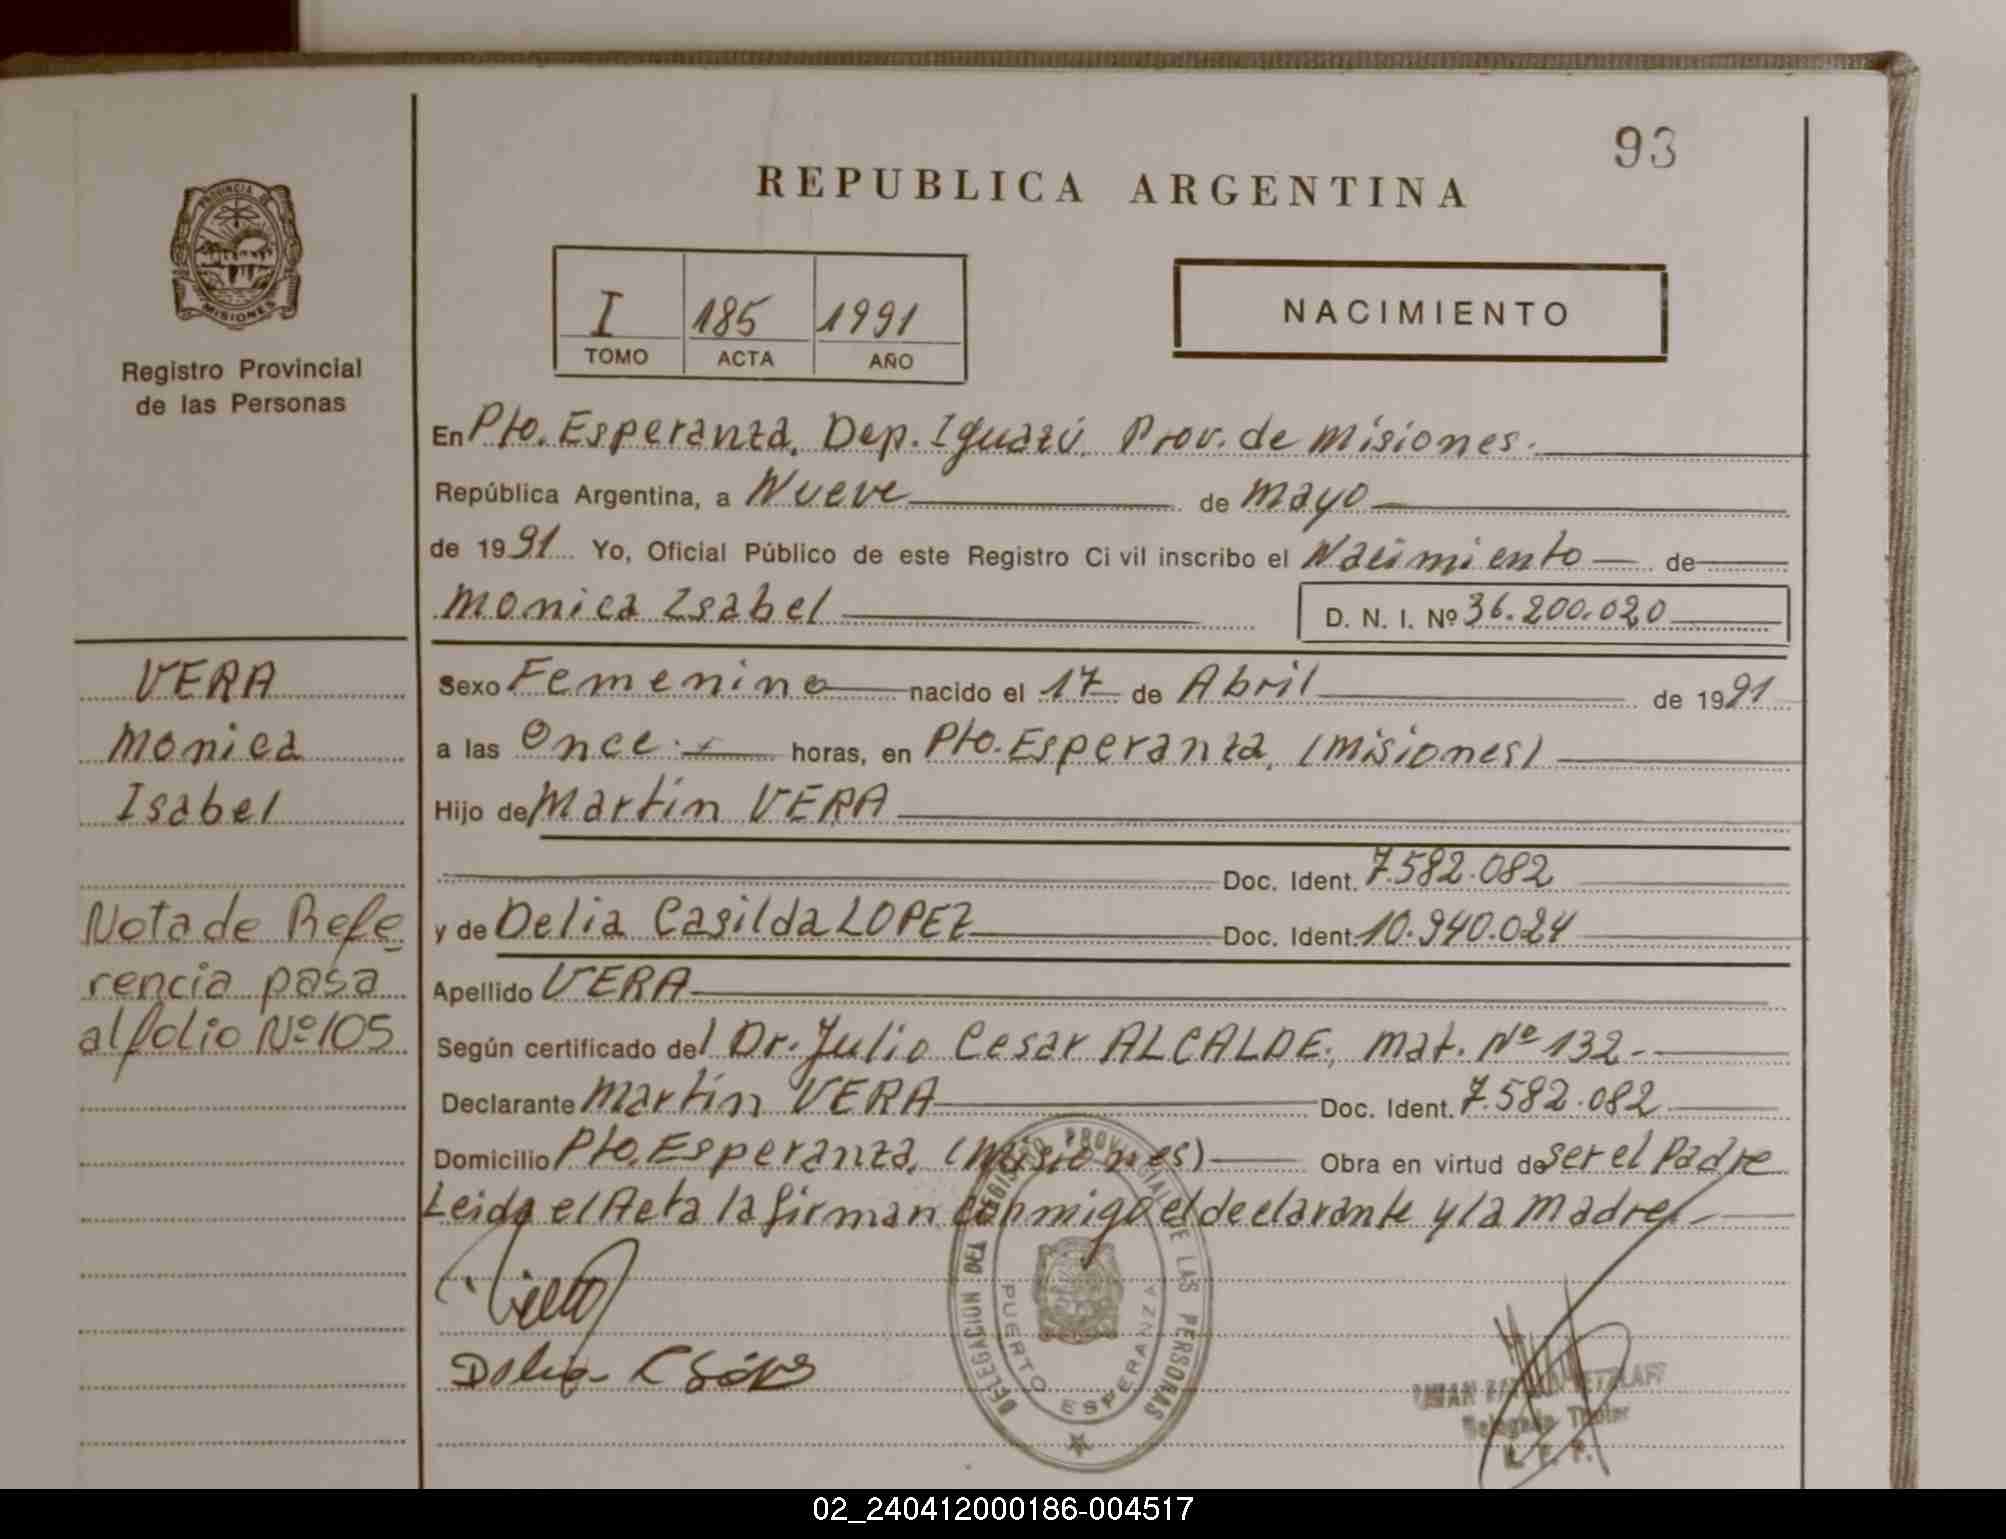 93
REPUBLICA ARGENTINA
PROVINCIA DE
MISIONES
Registro Provincial
de las Personas
I 185 1991
TOMO ACTA AÑO
NACIMIENTO
En Pto. Esperanza, Dep. Iguazú, Prov. de Misiones.
República Argentina, a Nueve de Mayo
de 1991 Yo, Oficial Público de este Registro Civil inscribo el Nacimiento de
Monica Isabel D. N. I. Nº 36.200.020
VERA
Monica
Isabel
Nota de Refe
rencia pasa
al folio Nº 105
Sexo Femenino nacido el 17 de Abril de 1991
a las Once horas, en Pto. Esperanza, (Misiones)
Hijo de Martín VERA
Doc. Ident. 7.582.082
y de Delia Casilda LOPEZ Doc. Ident. 10.940.024
Apellido VERA
Según certificado del Dr. Julio Cesar ALCALDE, mat. Nº 132.
Declarante Martín VERA Doc. Ident. 7.582.082
Domicilio Pto. Esperanza, (Misiones) Obra en virtud de ser el Padre
Leida el Acta la firman conmigo el declarante y la Madre
DELEGACION DEL REGISTRO PROVINCIAL DE LAS PERSONAS
PUERTO ESPERANZA
Titular
02_240412000186-004517